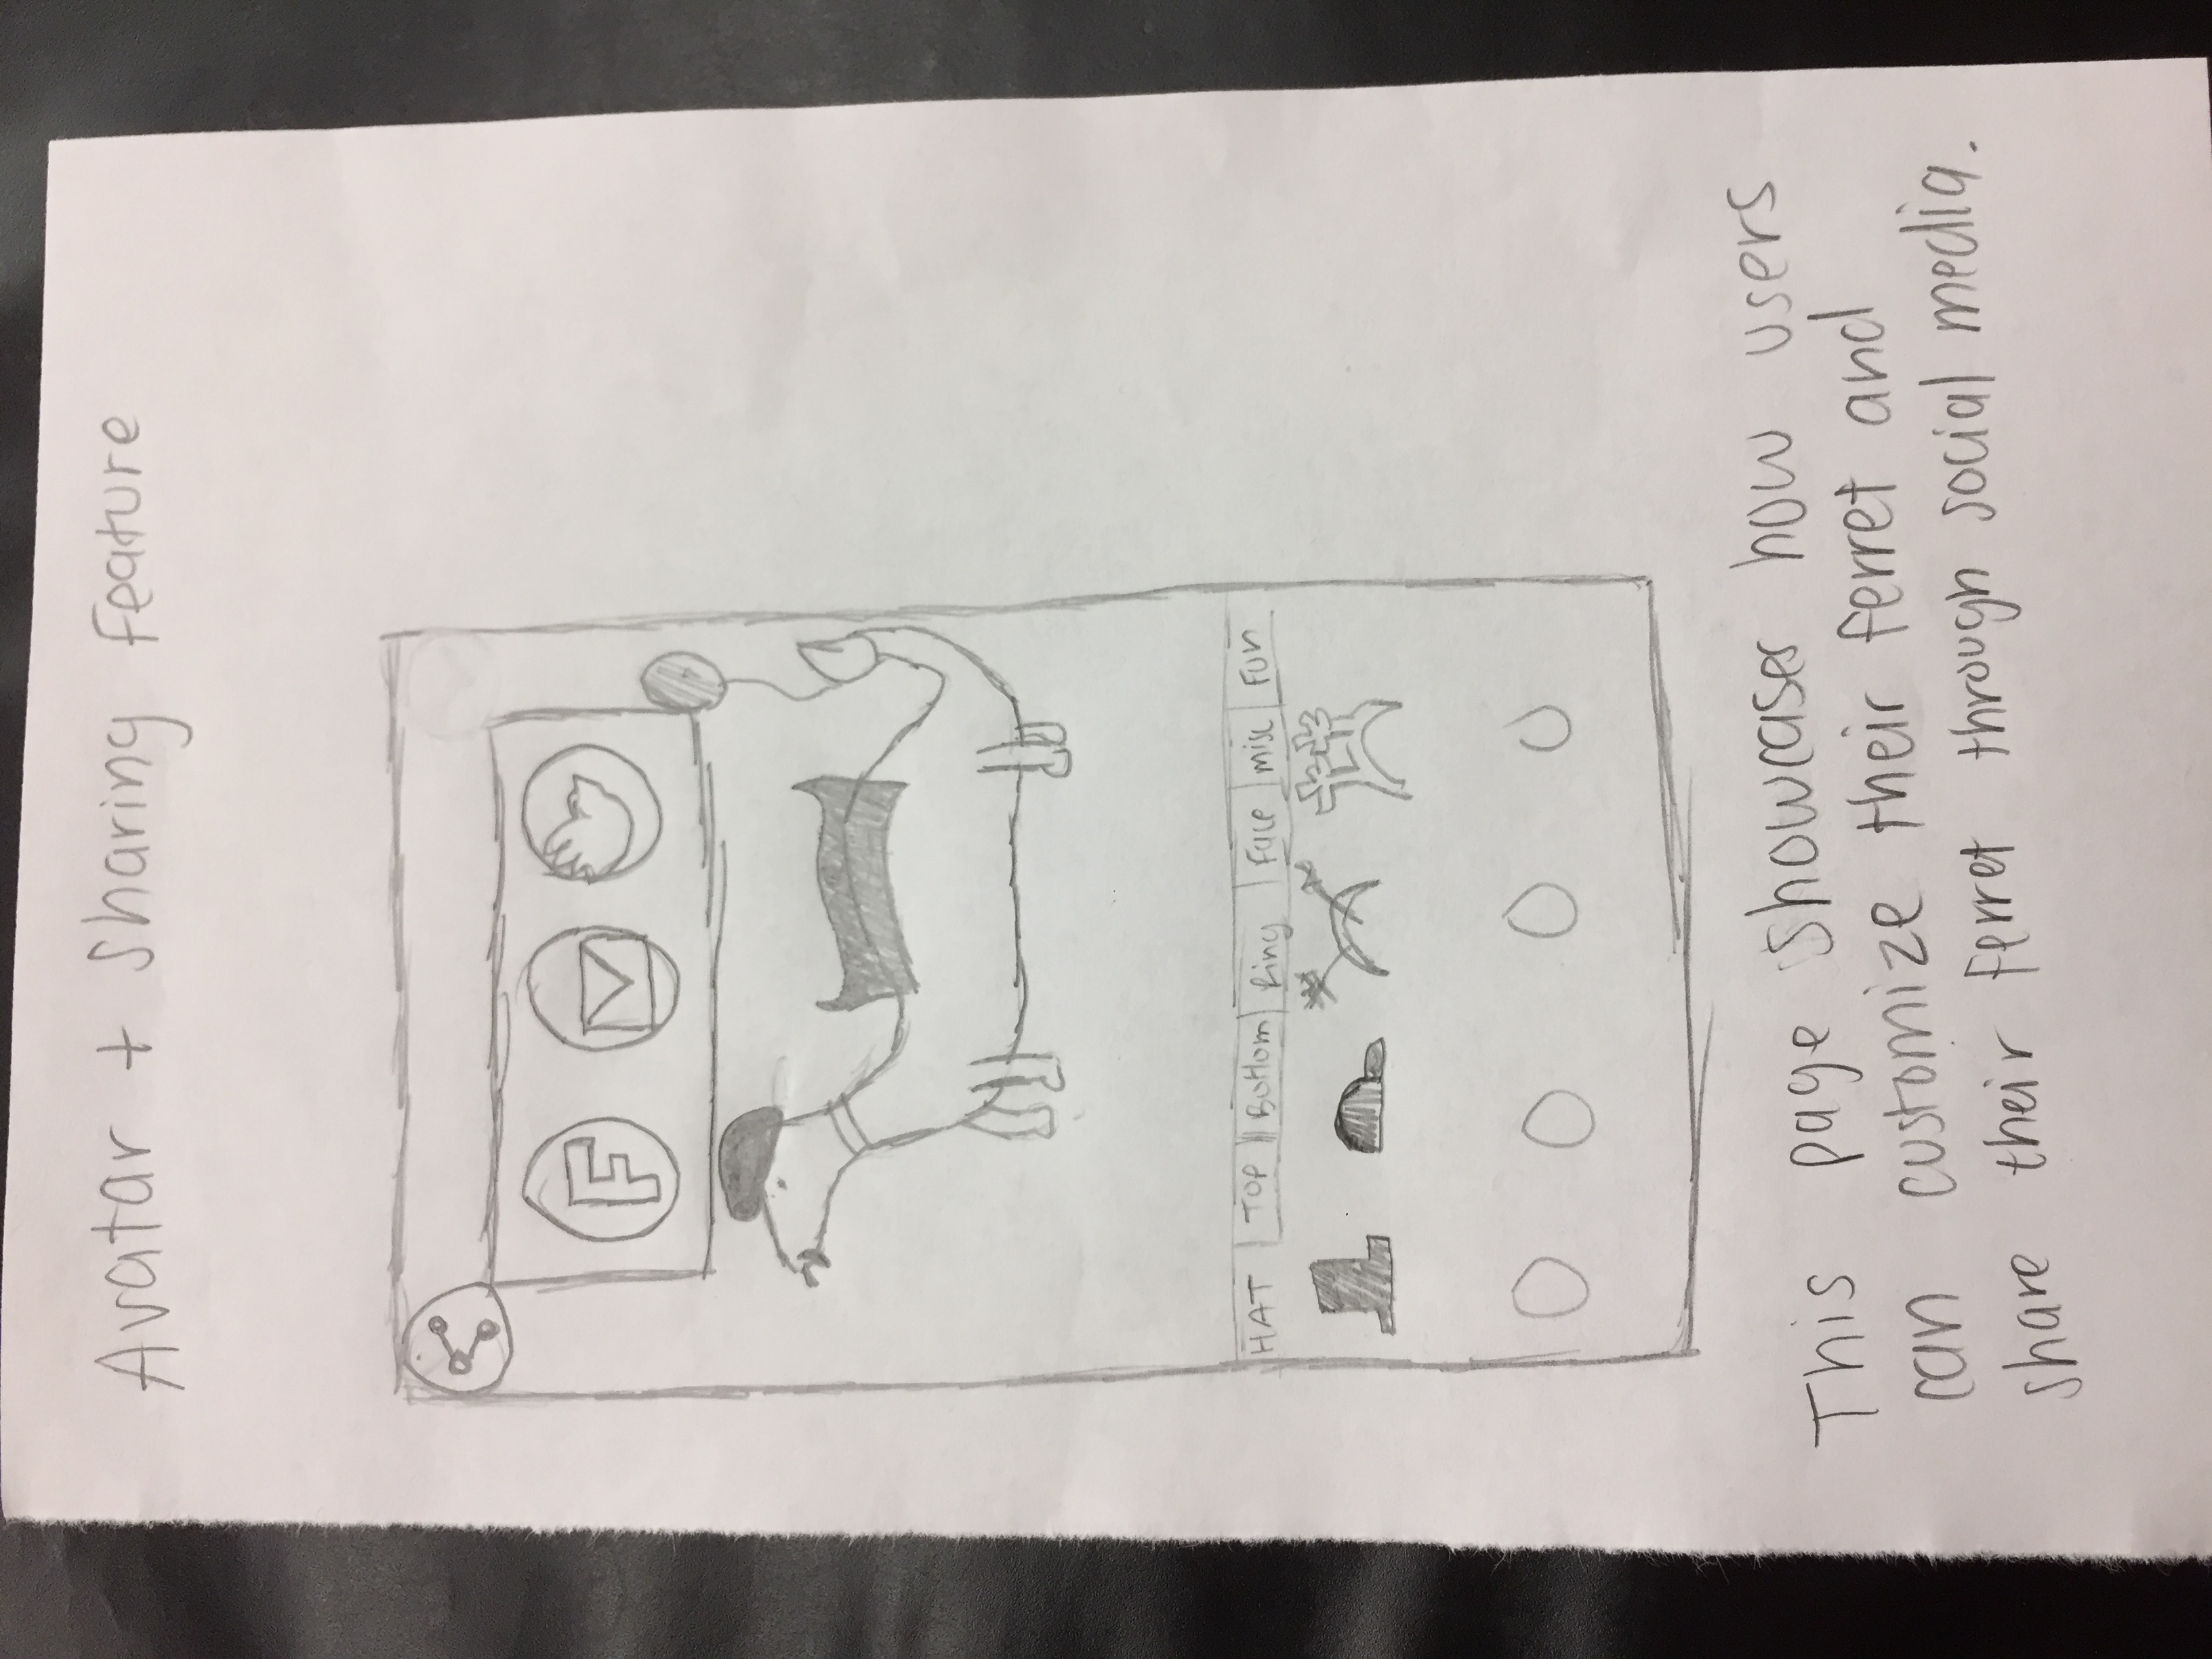 Avatar + Sharing Feature
F
HAT Top Bottom Ring Face misc Fun
This page showcases how users
can customize their ferret and
share their ferret through social media.